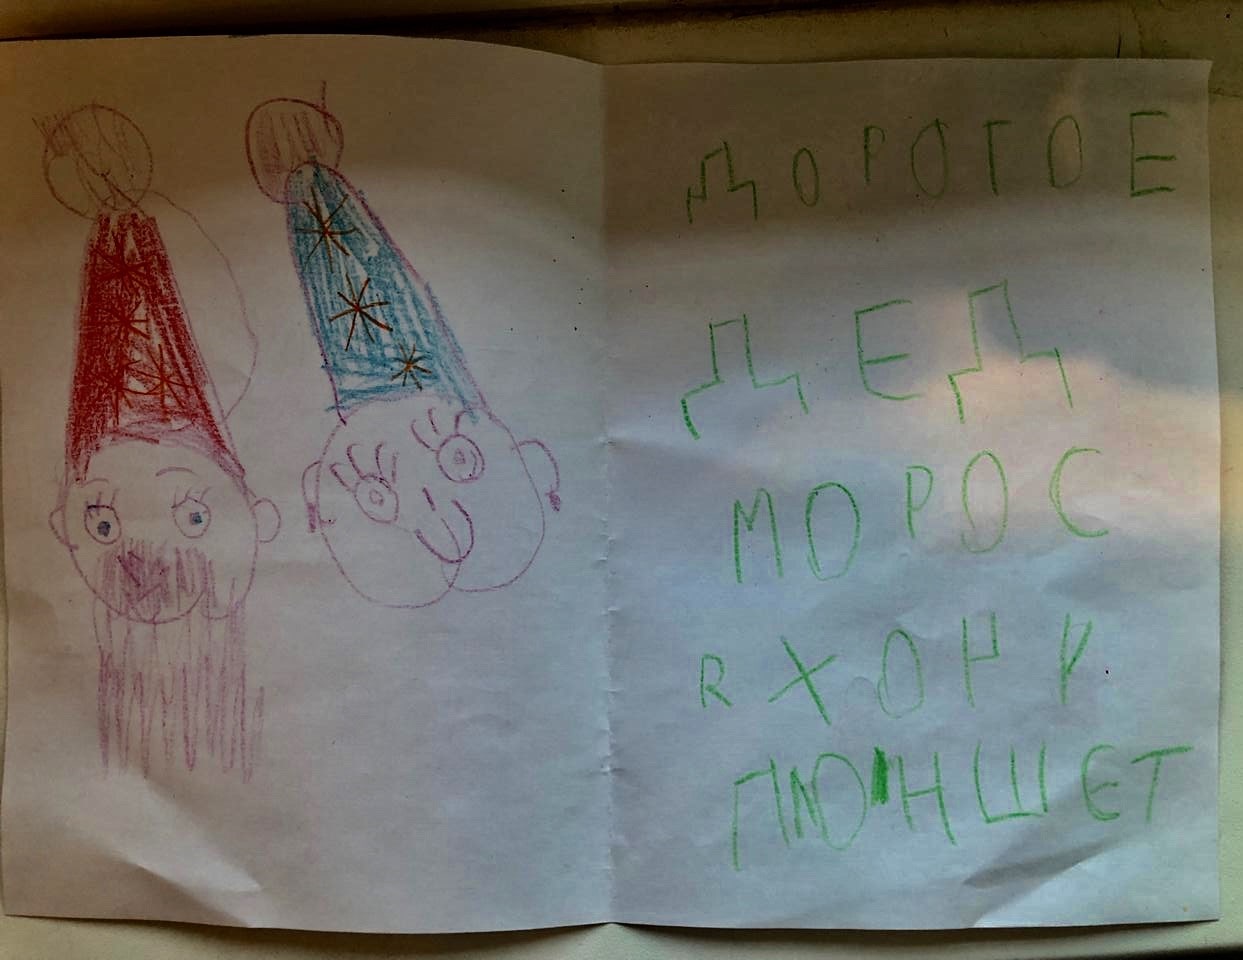 ДОРОГОЕ
ДЕД
МОРОС
R ХОЧУ
ПЮНШЕТ